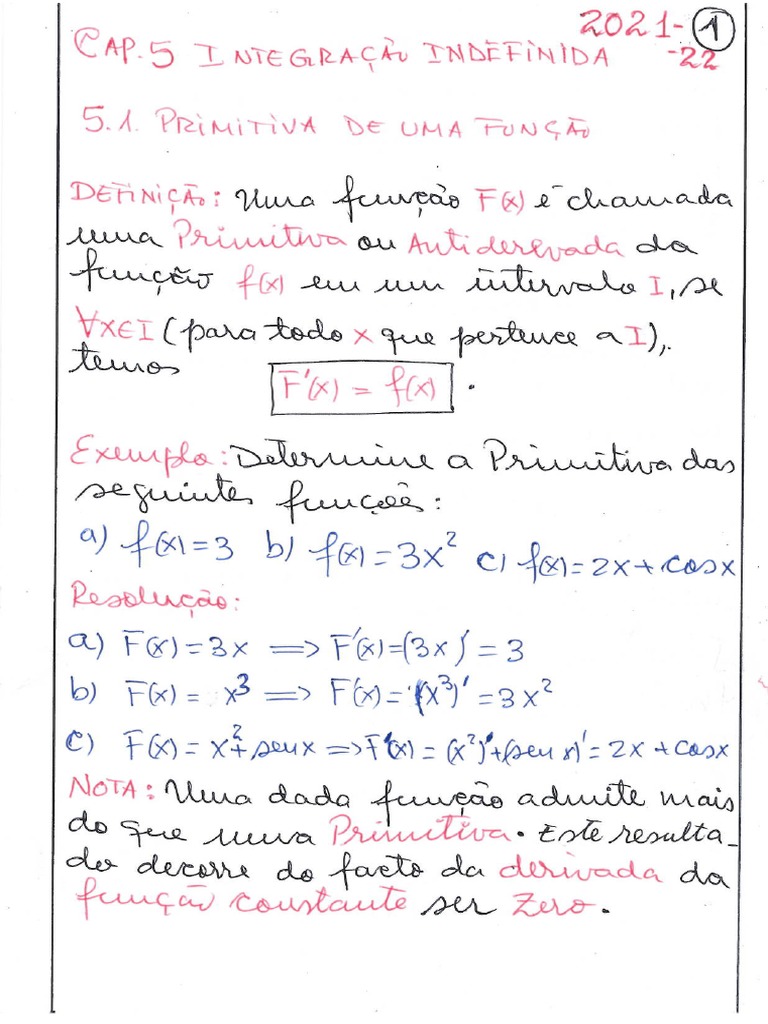 2021- 1
CAP. 5 INTEGRAÇÃO INDEFINIDA -22
5.1. PRIMITIVA DE UMA FUNÇÃO
DEFINIÇÃO: Uma função F(x) é chamada
uma Primitiva ou Antiderevada da
função f(x) em um intervalo I, se
∀x∈I (para todo x que pertence a I),
temos
F'(x) = f(x) .
Exemplo: Determine a Primitiva das
seguintes funções:
a) f(x) = 3 b) f(x) = 3x² c) f(x) = 2x + cosx
Resolução:
a) F(x) = 3x => F'(x) = (3x)' = 3
b) F(x) = x³ => F'(x) = (x³)' = 3x²
c) F(x) = x² + senx => F'(x) = (x²)' + (sen x)' = 2x + cosx
NOTA: Uma dada função admite mais
do que uma Primitiva. Este resulta_
do decorre do facto da derivada da
função constante ser Zero.